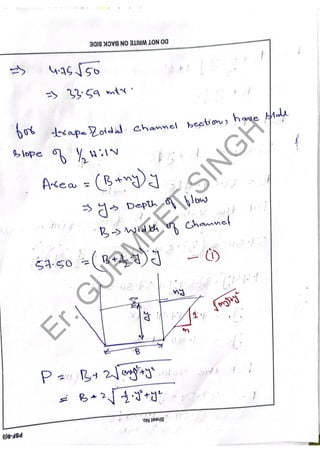 DO NOT WRITE ON BACK SIDE
=> 4.75√50
=> 33.59 mtr.
for trapezoidal channel section, have side
slope of 1/2 H:1V
Area = (B+ny) y
=> y → Depth of flow
B → Width of channel
57.50 = (B+1/2 y) y — (1)
ny
y
1
n
B
P = B+2√(ny)²+y²
= B+2√1/2·y²+y²
Sheet No.
PBF-9(I)
Er. GURMEET SINGH